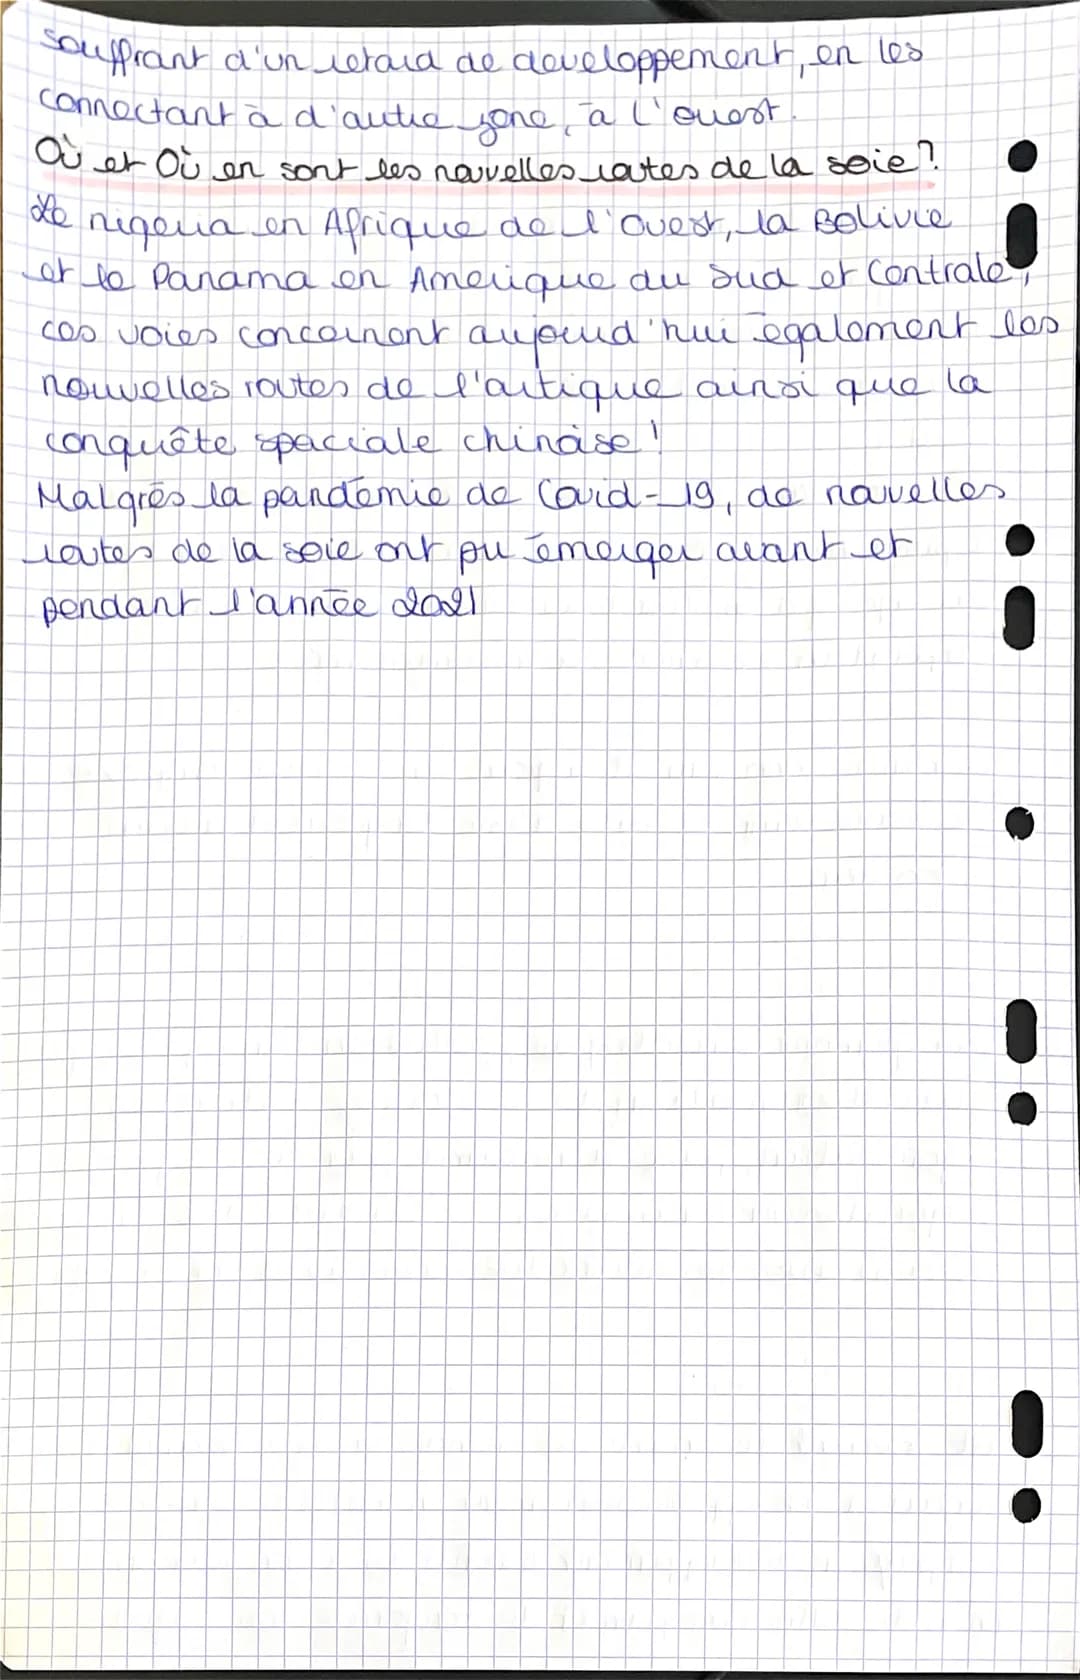 souffrant d'un retard de developpement, en les
connectant à d'autre zone, à l'ouest.
Où et Où en sont les nouvelles routes de la soie?
Le nigeria en Afrique de l'Ouest, la Bolivie
et le Panama en Amerique du Sud et Centrale,
ces voies concernent aujourd'hui egalement les
nouvelles routes de l'artique ainsi que la
conquête spaciale chinoise!
Malgrés la pandémie de Covid-19, de nouvelles
routes de la soie ont pu émerger avant et
pendant l'année 2021